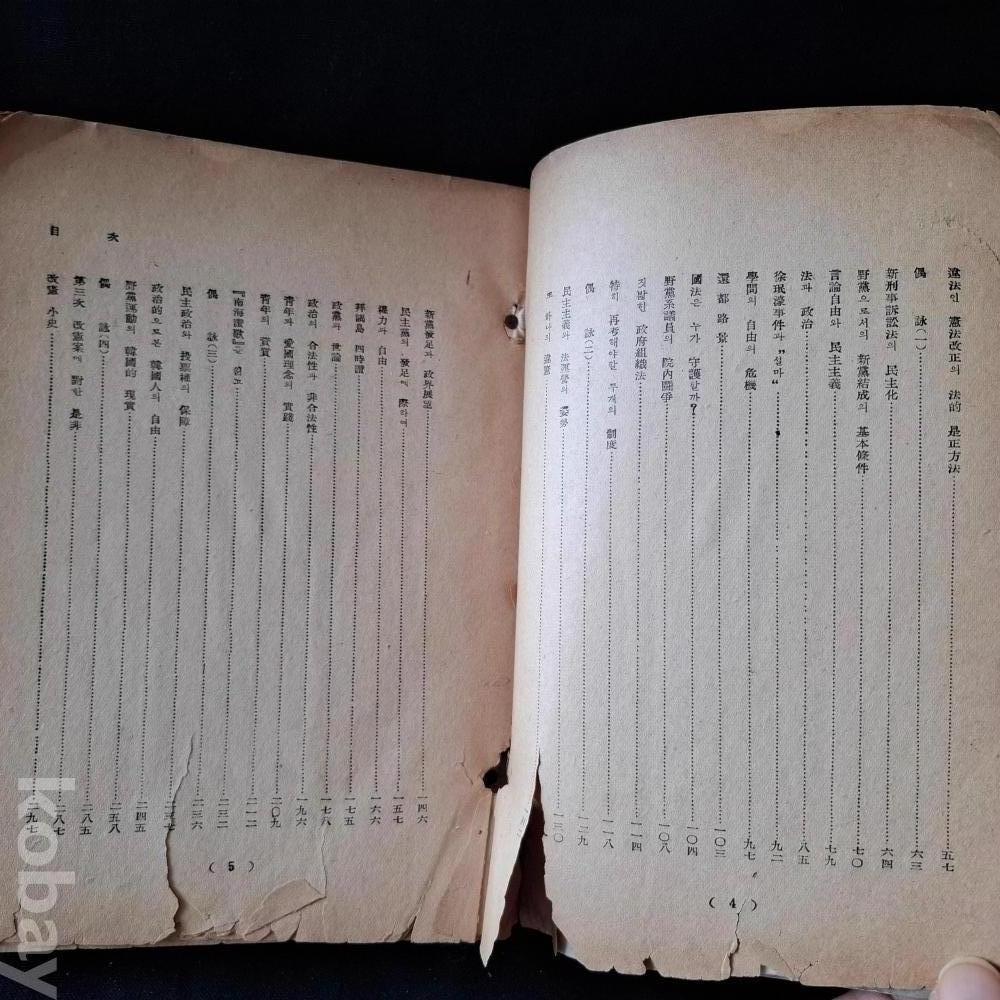 違法인 憲法改正의 法的 是正方法 五七
偶 詠(一) 六三
新刑事訴訟法의 民主化 六四
野黨으로서의 新黨結成의 基本條件 七〇
言論自由와 民主主義 七九
法과 政治 八五
徐珉濠事件과 "설마" 九二
學問의 自由의 危機 九七
還都路景 一〇三
國法은 누가 守護할까? 一〇四
野黨系議員의 院內鬪爭 一〇八
짓밟힌 政府組織法 一一四
特히 再考해야할 두개의 制度 一一九
偶 詠(二) 一二九
民主主義와 法運營의 姿勢 一三〇
또 하나의 違憲
(4)
目 次
新黨發足과 政界展望 一四六
民主黨의 發足에 際하여 一五七
權力과 自由 一六六
四時讚 一七五
政黨과 世論 一七八
政治의 合法性과 非合法性 一九六
靑年과 愛國理念의 實踐 二〇九
靑年의 資質 二一二
『南海讚歌』를 읽고 二三二
偶 詠(三) 二三六
民主政治와 投票權의 保障
政治的으로본 韓國人의 自由 二四五
野黨運動의 韓國的 現實 二五八
偶 詠(四) 二八五
第三次 改憲案에 對한 是非 二八七
改憲 小史 九七
(5)
kobay